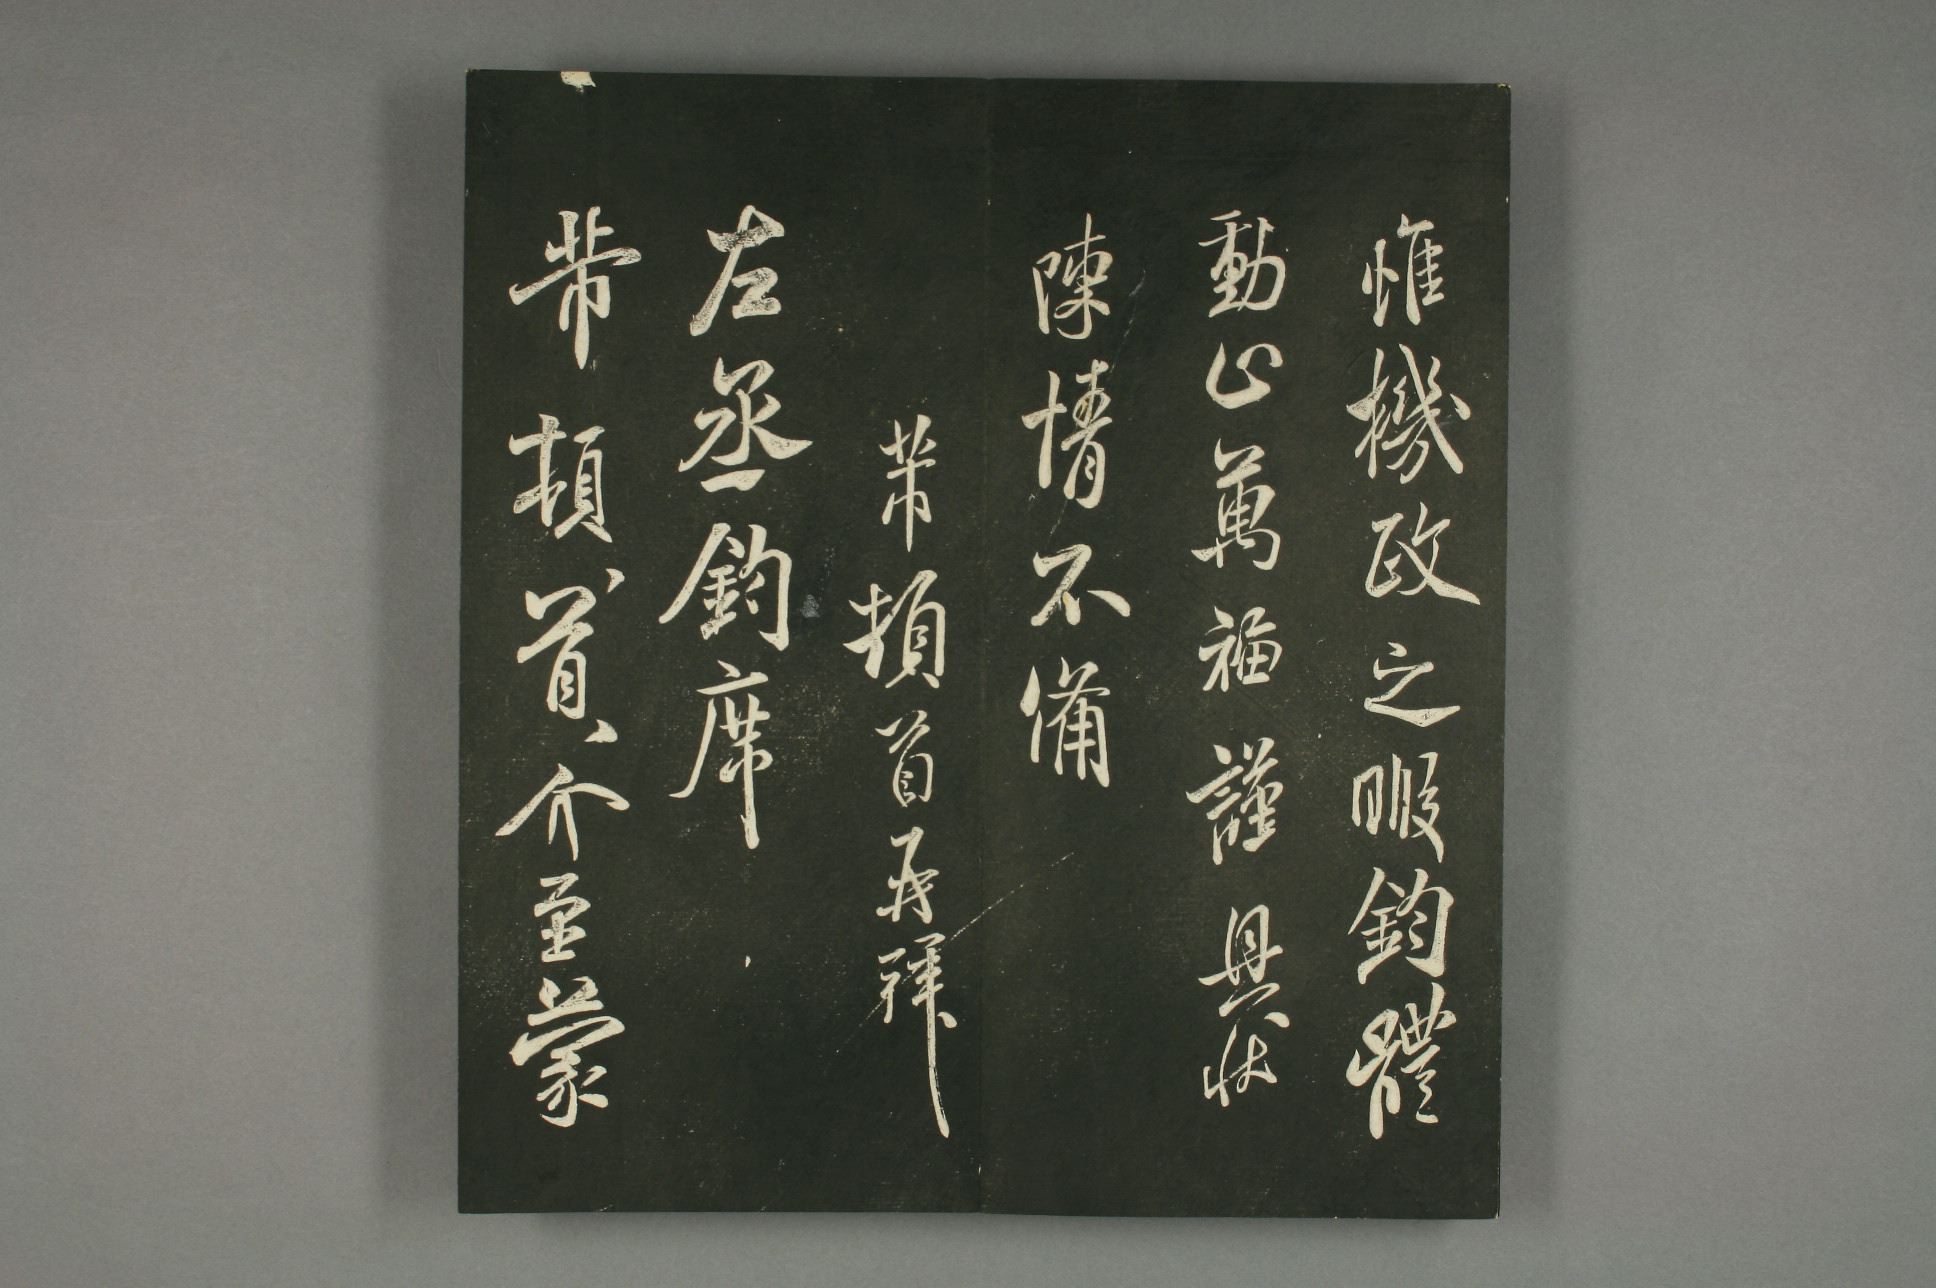 惟機政之暇鈞體
動止萬福謹具狀
陳情不備
芾頓首再拜
左丞鈞席
芾頓首介至蒙